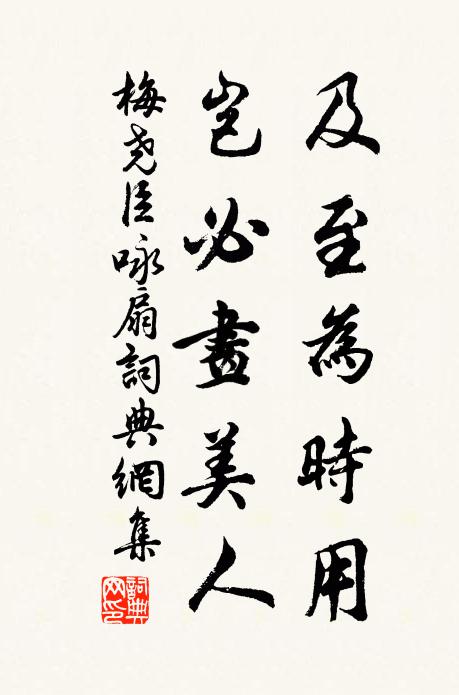 及至為時用
豈必畫美人
梅尧臣咏扇詞典網集
詞典网印